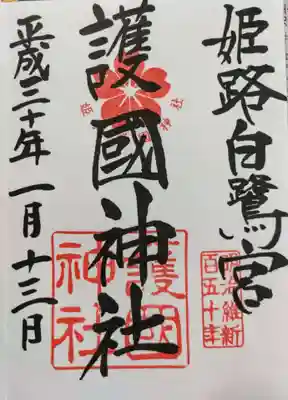 姫路白鷺宮
護國神社
平成三十年一月十三日
明治維新
百五十年
護國
神社